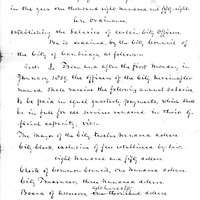 in the year one thousand eight hundred and fifty eight
An Ordinance
establishing the Salaries of certain City Officers
Be it ordained by the City Council of
the City of as follows:
Sect. 1. From and after the first Monday in
January 1859, the officers of the City hereinafter
named shall receive the following annual salaries
to be paid in equal quarterly payments, which shall
be in full for all services rendered in their
official capacity, viz:
The Mayor of the City twelve hundred dollars
City Clerk, exclusive of fees established by law,
eight hundred and fifty dollars
Clerk of Common Council, one hundred dollars
City Treasurer, three hundred dollars
eight hundred & fifty
Board of Assessors, one thousand dollars